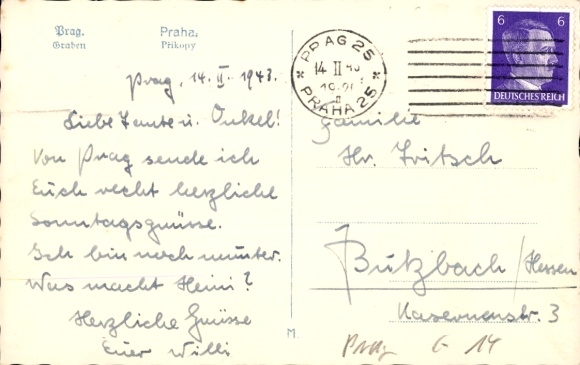 Prag. Praha,
Graben Příkopy
Prag, 14. II. 1943.
Liebe Tante u. Onkel!
Von Prag sende ich
Euch recht herzliche
Sonntagsgrüsse.
Ich bin noch munter.
Was macht Heini?
Herzliche Grüsse
Euer Willi
M.
PRAG 25
14 II 43
PRAHA 25
6 6
DEUTSCHES REICH
Familie
Hr. Fritsch
Butzbach/Hessen
Kasernenstr. 3
Prag 14